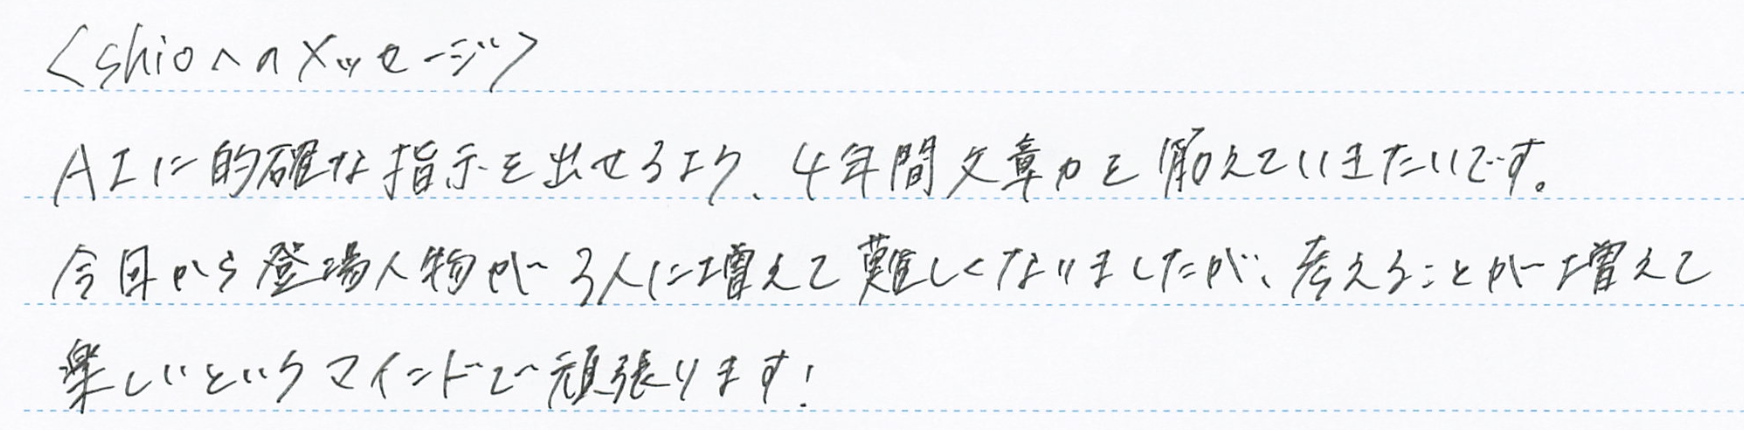 <shioへのメッセージ>
AIに的確な指示を出せるよう、4年間文章力を鍛えていきたいです。
今回から登場人物が3人に増えて難しくなりましたが、考えることが増えて
楽しいというマインドで頑張ります!